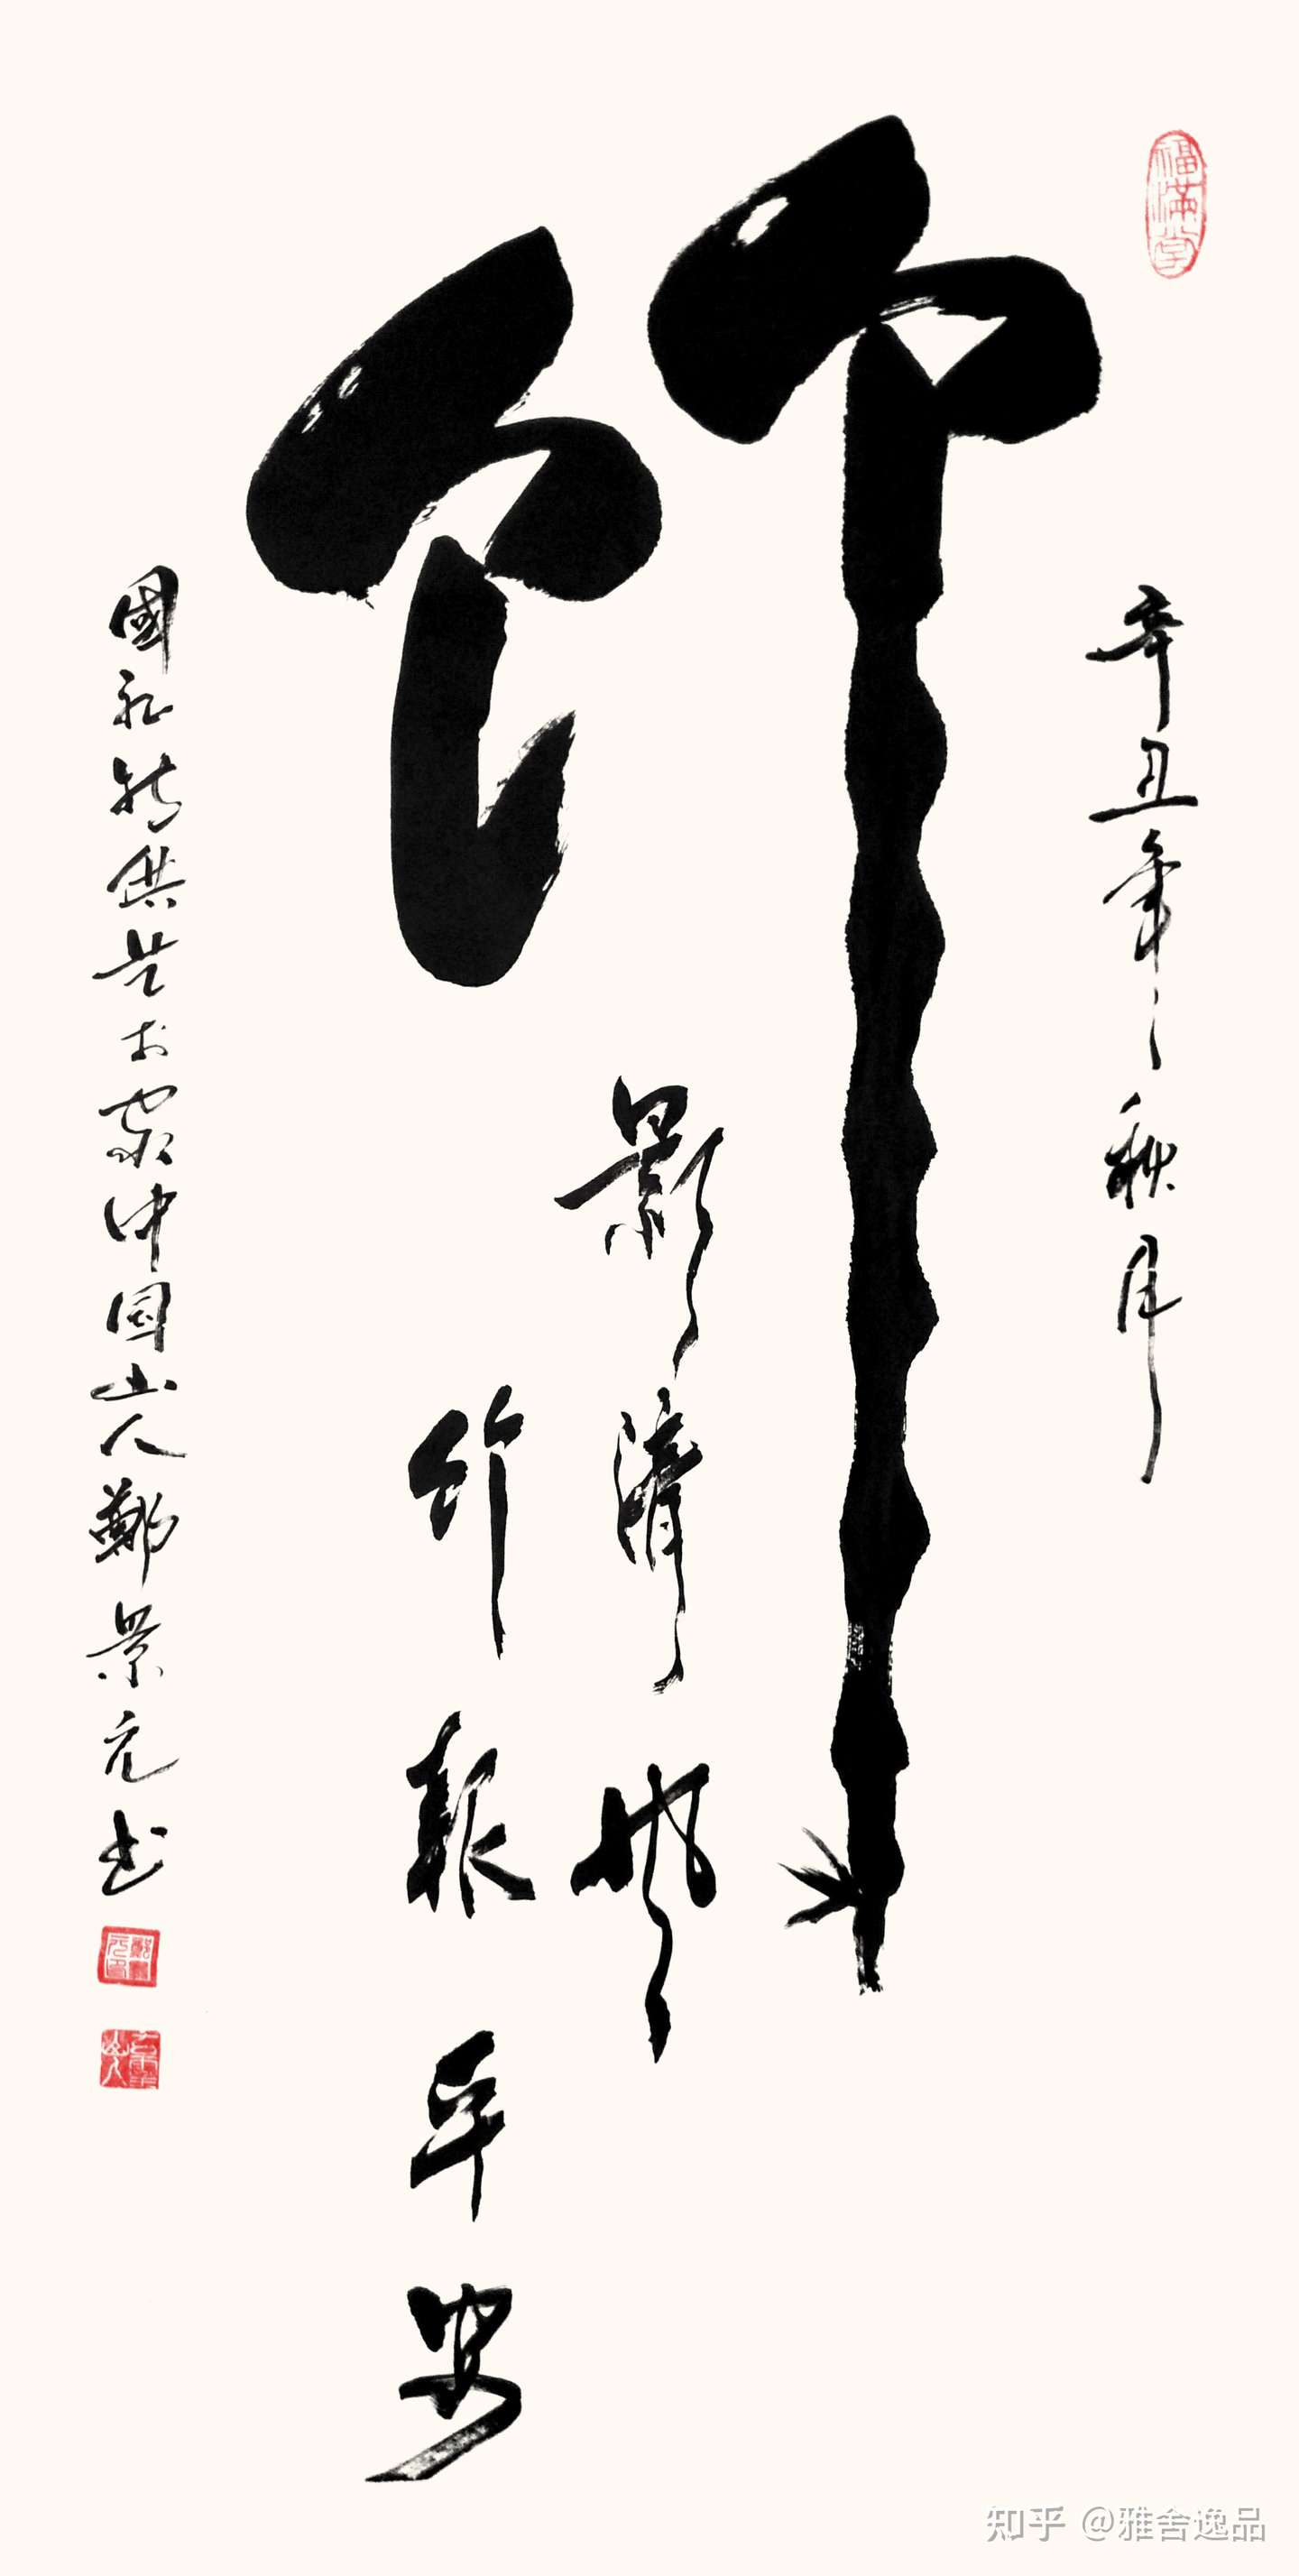 福滿堂
辛丑年秋月
竹
影清風
竹報平安
國礼特供艺术家中国山人鄭景元书
知乎 @雅舍逸品